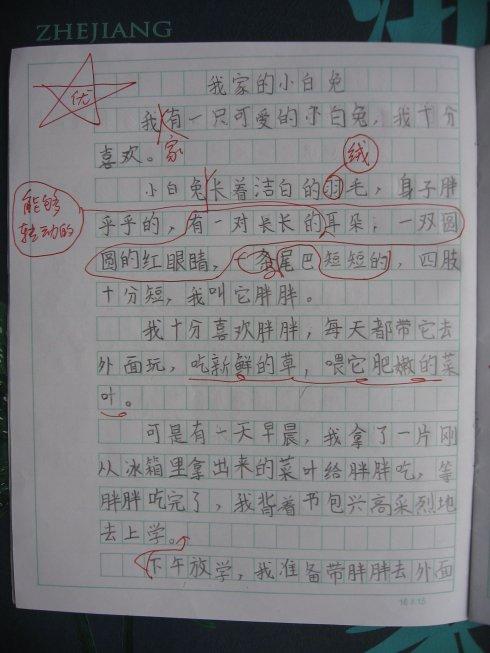 ZHEJIANG
优
我家的小白兔
我有一只可爱的小白兔，我十分
喜欢。家
绒
小白兔长着洁白的羽毛，身子胖
能够
转动的
乎乎的，有一对长长的耳朵，一双圆
圆的红眼睛，一条尾巴短短的，四肢
十分短，我叫它胖胖。
我十分喜欢胖胖，每天都带它去
外面玩，吃新鲜的草，喂它肥嫩的菜
叶。
可是有一天早晨，我拿了一片刚
从冰箱里拿出来的菜叶给胖胖吃，等
胖胖吃完了，我背着书包兴高采烈地
去上学。
下午放学，我准备带胖胖去外面